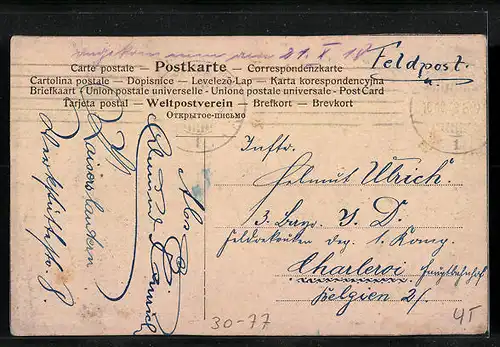 angekommen am 21. X. 18
Feldpost.
Carte postale — Postkarte — Correspondenzkarte
Cartolina postale — Dopisnice — Levelezö-Lap — Karta korespondencyjna
Briefkaart — Union postale universelle — Unione postale universale — Post Card
Tarjeta postal — Weltpostverein — Brefkort — Brevkort
Открытое-письмо
Inftr.
Helmut Ulrich.
3. Bayr. J. D.
Feldrekruten Dep. 1. Komp.
Charleroi Hauptbahnhof
Belgien
Abs.
Kaiserslautern
30-77
45